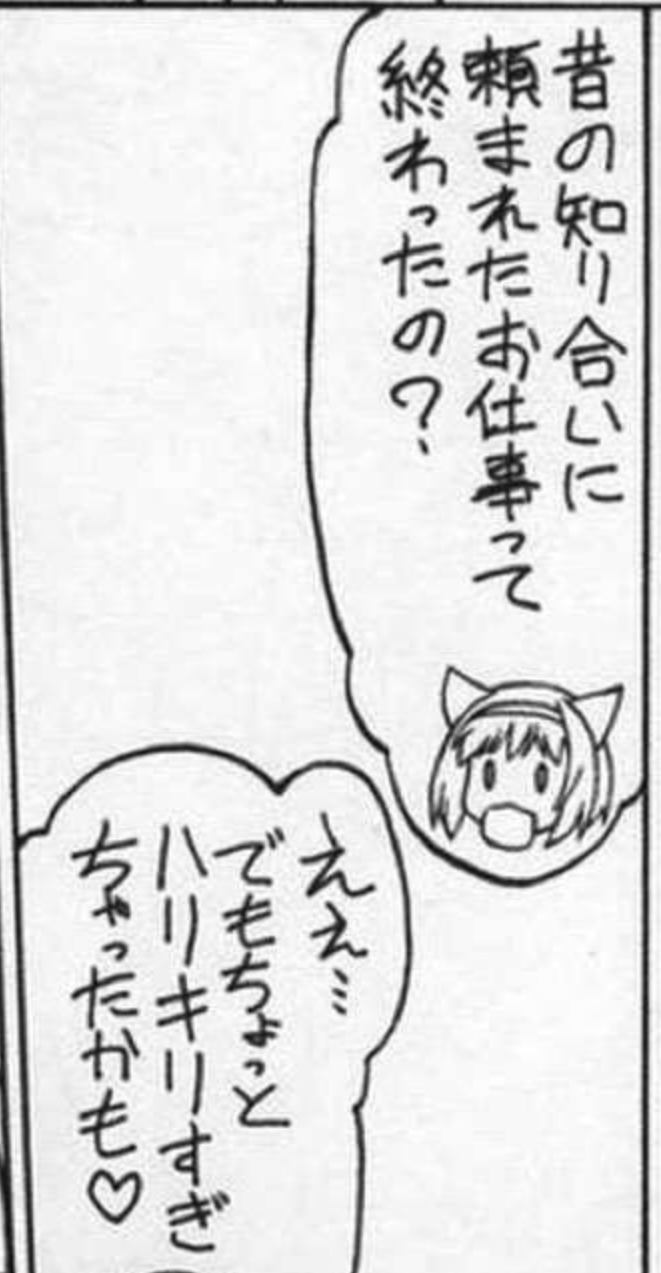 昔の知り合いに
頼まれたお仕事って
終わったの?
ええ…
でもちょっと
ハリキリすぎ
ちゃったかも♡